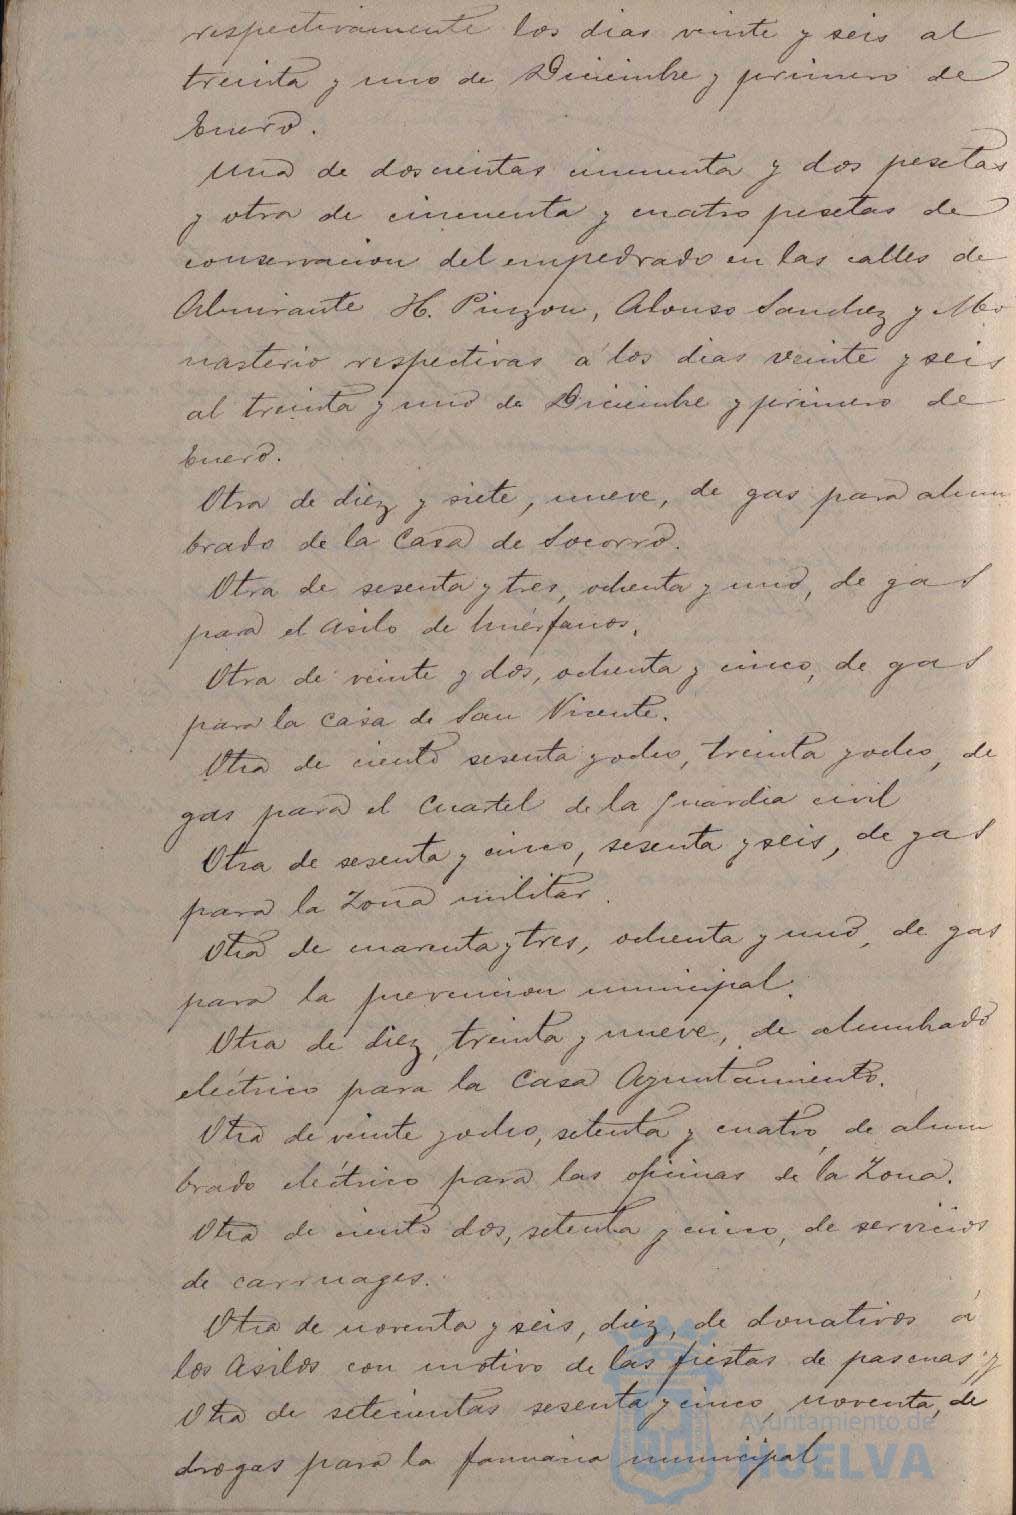 respectivamente los dias veinte y seis al
treinta y uno de Diciembre y primero de
Enero.
Una de doscientas cincuenta y dos pesetas
y otra de cincuenta y cuatro pesetas de
conservacion del empedrado en las calles de
Almirante H. Pinzon, Alonso Sanchez y Mo
nasterio respectivas á los dias veinte y seis
al treinta y uno de Diciembre y primero de
Enero.
Otra de diez y siete, nueve, de gas para alum
brado de la Casa de Socorro.
Otra de sesenta y tres, ochenta y uno, de gas
para el Asilo de huérfanos.
Otra de veinte y dos, ochenta y cinco, de gas
para la Casa de San Vicente.
Otra de ciento sesenta y ocho, treinta y ocho, de
gas para el Cuartel de la Guardia civil
Otra de sesenta y cinco, sesenta y seis, de gas
para la Zona militar.
Otra de cuarenta y tres, ochenta y uno, de gas
para la prevencion municipal.
Otra de diez, treinta y nueve, de alumbrado
eléctrico para la Casa Ayuntamiento.
Otra de veinte y ocho, setenta y cuatro, de alum
brado eléctrico para las oficinas de la Zona.
Otra de ciento dos, setenta y cinco, de servicios
de carruages.
Otra de noventa y seis, diez, de donativos á
los Asilos con motivo de las fiestas de pascuas y
Otra de setecientas sesenta y cinco, noventa, de
drogas para la farmacia municipal
Ayuntamiento de
HUELVA